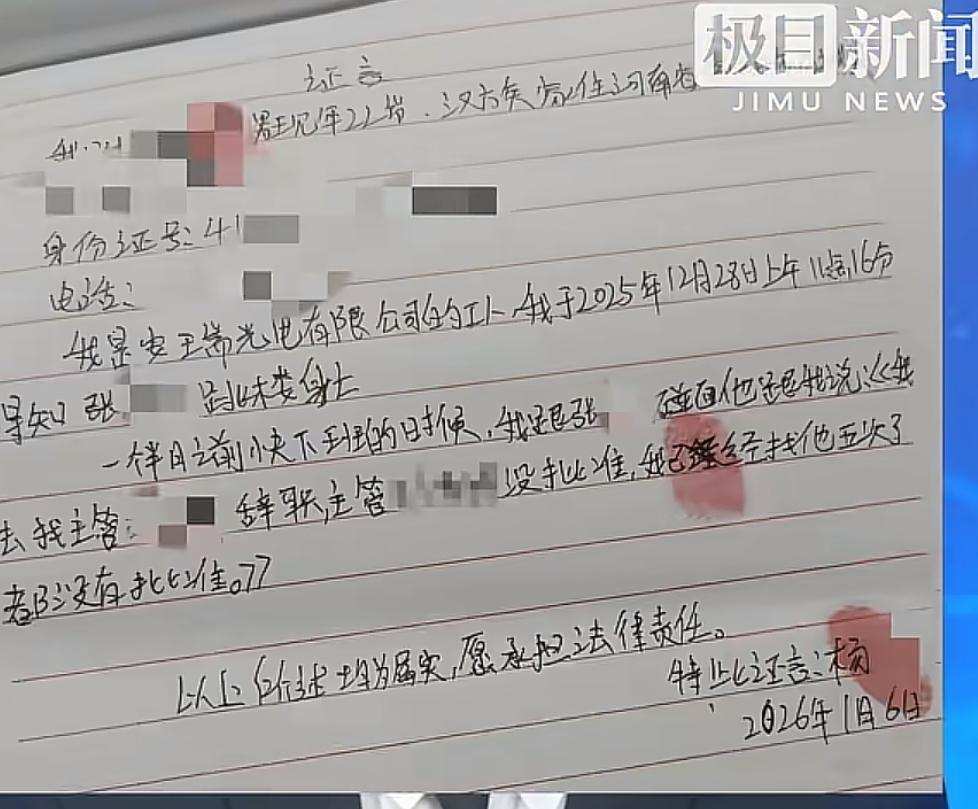 极目新闻
JIMU NEWS
证言
我叫 男现年22岁,汉族家住河南省
身份证号:41
电话:
我是安 瑞光电有限公司的工人,我于2025年12月28日上午11点16分
得知张 跳 身亡
一样月之前小夹下班的时候,我跟张 碰面他跟我说《我
去找主管: 辞职,主管 没批准,我已经找他五次了
都没有批准。》
以上 述均为属实,愿承担法律责任。
特此证言:杨
2026年1月6日